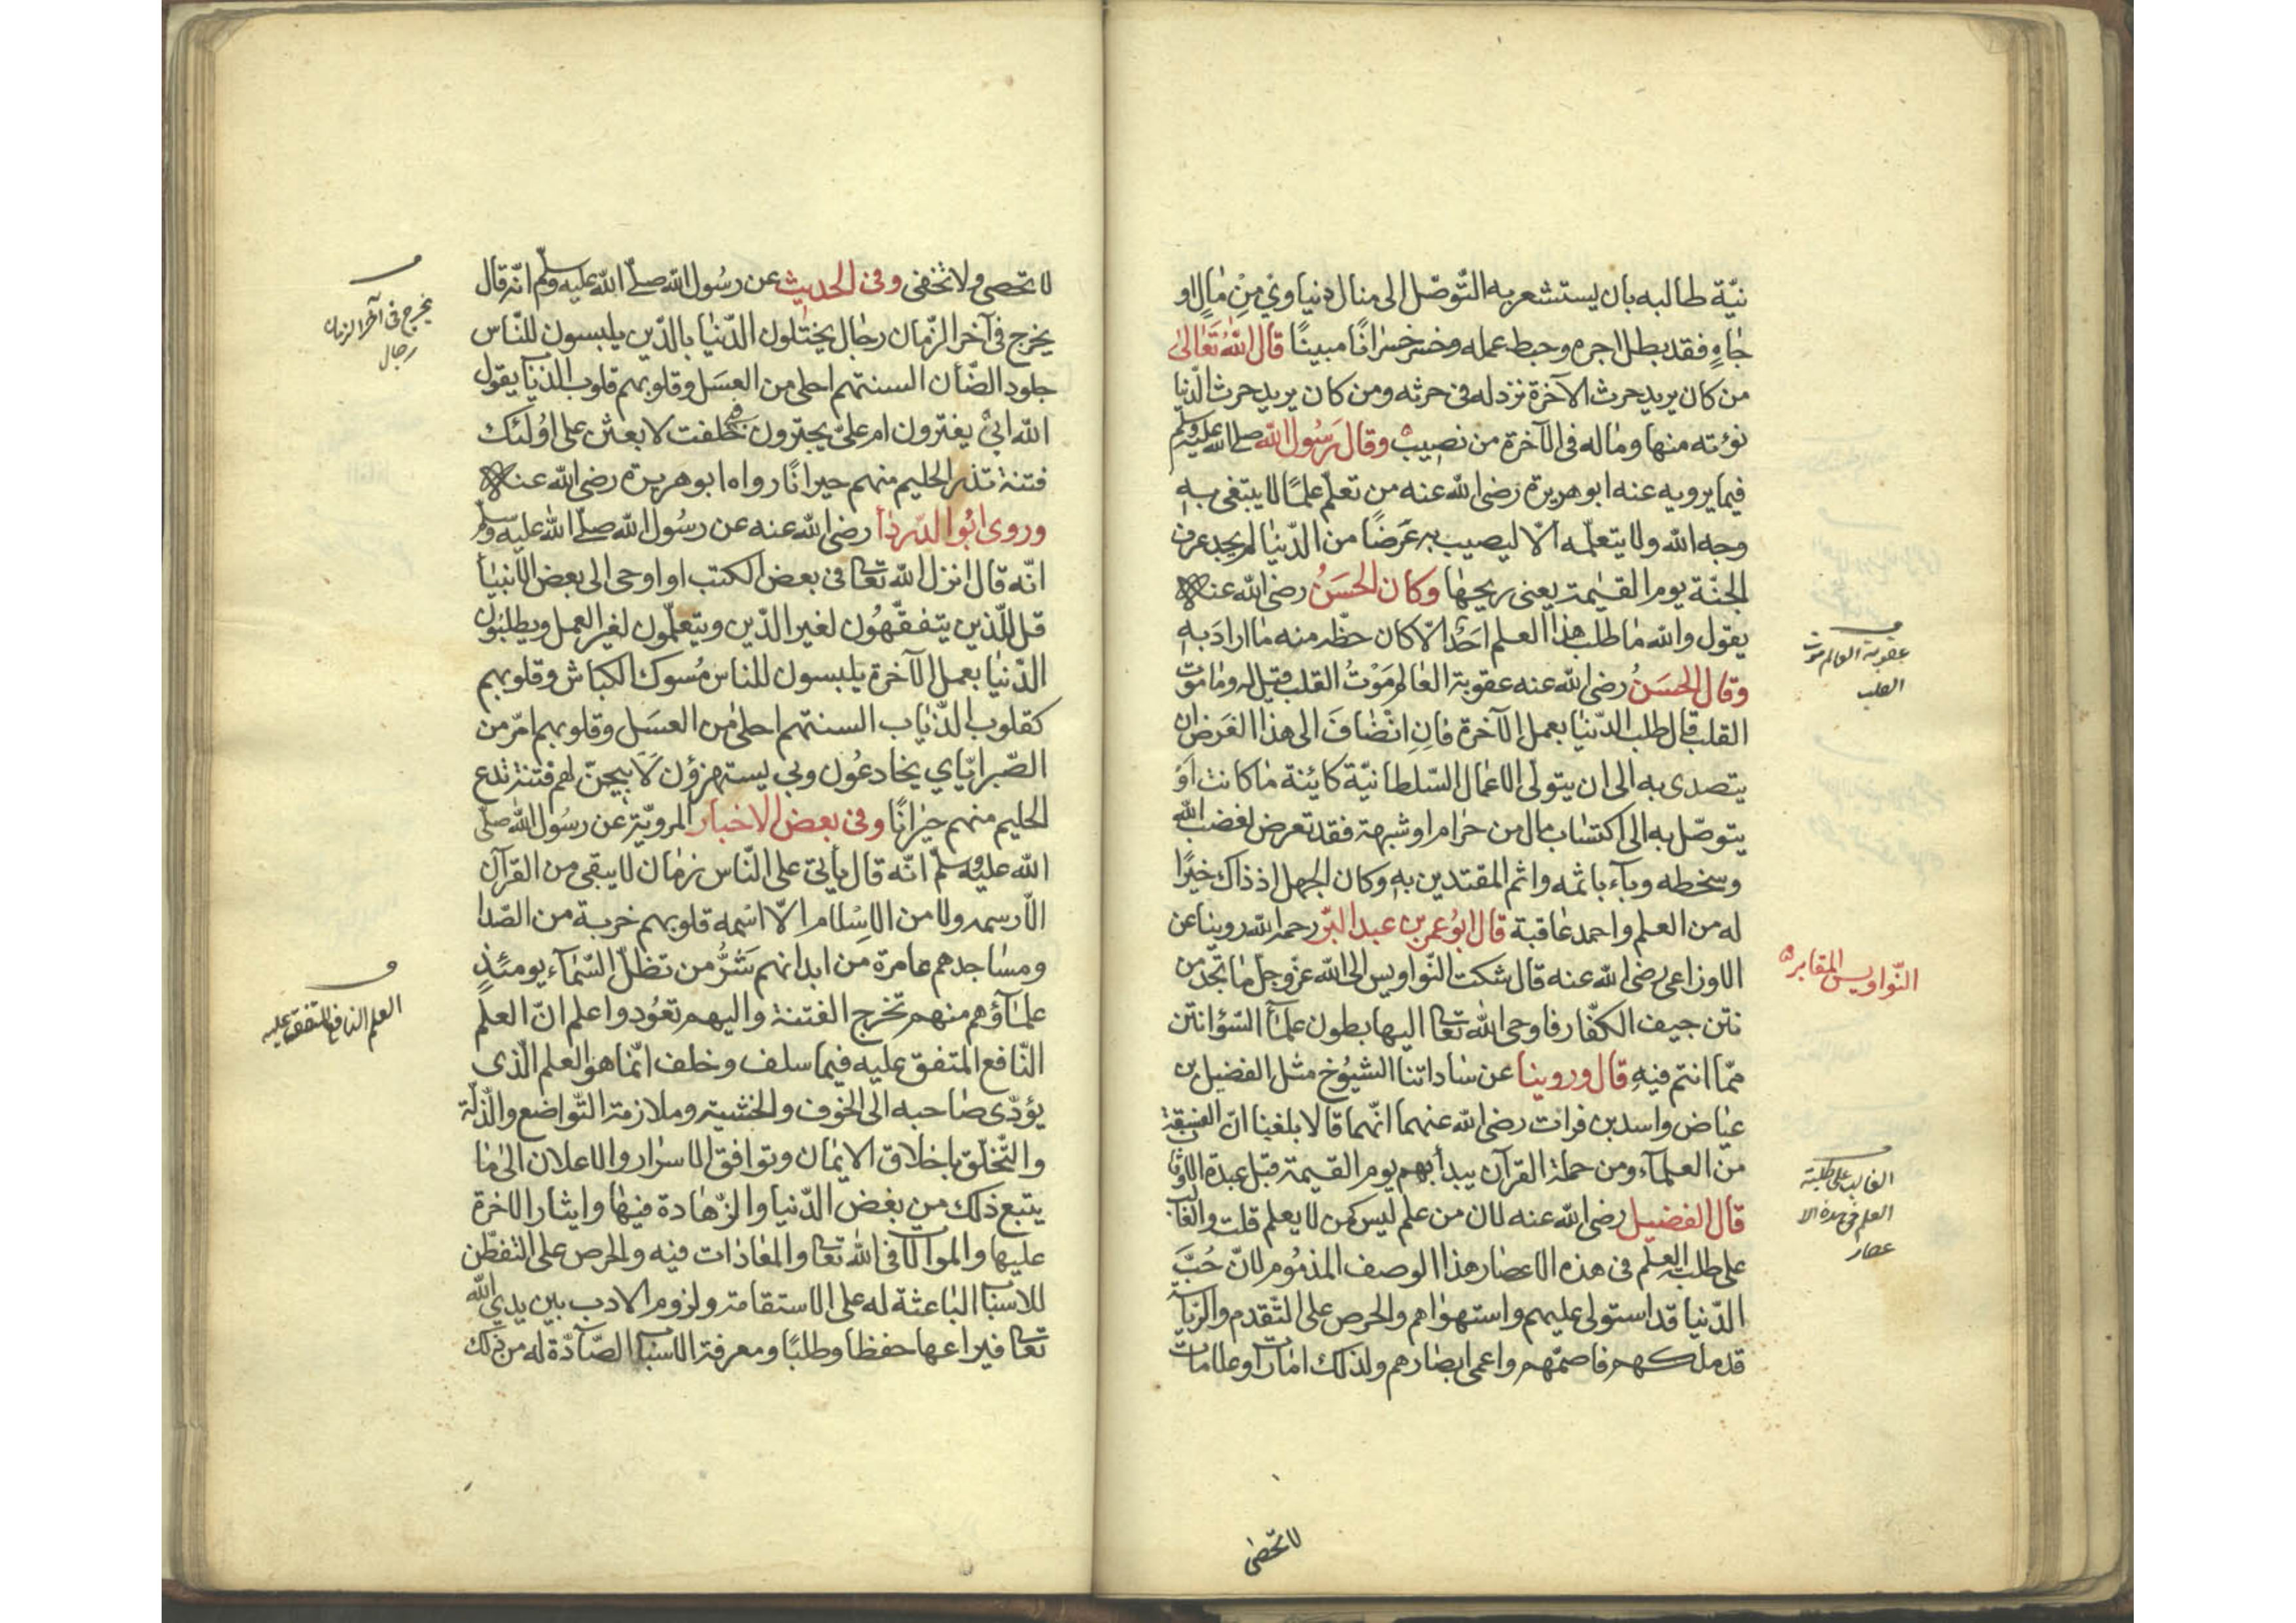 نيّة طالبه بان يستشعر به التّوصّل الى منال دنياويّ مِنْ مَالٍ او
جَاهٍ فقد بطل اجره وحبط عمله وخسر خسرانًا مبينًا قال اللهُ تَعَالىٰ
من كان يريد حرث الآخرة نزد له فى حرثه ومن كان يريد حرث الدّنيا
نؤته منها وماله فى الآخرة من نصيب وقال رَسُول الله صلى الله عليه وسلم
فيما يرويه عنه ابو هريرة رضى الله عنه من تعلّم علمًا لا يبتغى به
وجه الله ولا يتعلّمه الّا ليصيب به عَرَضًا من الدّنيا لم يجد عرف
الجنّة يوم القيٰمة يعنى ريحها وكان الحَسَنُ رضى الله عنه
يقول والله ما طلب هذا العلم احَدٌ الّا كان حظّه منه ما ارادَ به
وقال الحَسَنُ رضى الله عنه عقوبة العالم مَوْتُ القلب قيل له وما موت
القلب قال طلب الدّنيا بعمل الآخرة فانِ انضَافَ الى هذا الغَرَض ان
يتصدى به الى ان يتولى الاعمال السّلطانيّة كائنة ما كانت اَوْ
يتوصّل به الى اكتساب مال من حرام او شبهة فقد تعرض لغضب الله
وسخطه وبآء باثمه واثم المقتدين به وكان الجهل اذ ذاك خيرًا
له من العلم واحمد عاقبة قال ابُو عمر بن عبد البرّ رحمه الله روينا عن
الاوزاعى رضى الله عنه قال شكت النّواويس الى الله عزّ وجلّ ما تجد من
نتن جيف الكفّار فاوحى الله تعا اليها بطون علمآء السّوُء انتن
ممّا انتم فيهِ قال وروينا عن ساداتنا الشيُوخ مثل الفضيل بن
عياض واسد بن فرات رضى الله عنهما انّهما قالا بلغنا انّ الفسقة
من العلمآء ومن حملة القرآن يبدأ بهم يوم القيٰمة قبل عبدة الاوثان
قال الفضيل رضى الله عنه لان من علم ليس كمن لا يعلم قلت والغالب
على طلبة العلم فى هذه الاعصار هذا الوصف المذمُوم لانّ حُبَّ
الدّنيا قد استولى عليهم واستهواهم والحرص على التّقدم والرّياسة
قد ملكهم فاصمّهم واعمى ابصارهم ولذلك امارات وعلامات
عقوبة العالم موت
القلب
النّواويس المقابر
الغالب على طلبة
العلم فى هذه الا
عصار
لا تحصى
لا تحصى ولا تخفى وفى الحديث عن رسُول الله صلّى الله عليه وسلّم انّه قال
يخرج فى آخر الزّمان رجال يختلون الدّنيا بالدّين يلبسون للنّاس
جلود الضّأن السنتهم احلى من العسَل وقلوبهم قلوب الذئاب يقول
الله ابيْ يغترون ام علىّ يجترون فبى حلفت لابعثن على اوُلئك
فتنة تذر الحليم منهم حيرانًا رواه ابو هريرة رضى الله عنه
وروى ابُو الدّرداء رضى الله عنه عن رسُول الله صلّى الله عليه وسلّم
انّه قال انزل الله تعا فى بعض الكتب او اوحى الى بعض الانبياء
قل للّذين يتفقّهُون لغير الدّين ويتعلّمون لغير العمل ويطلبُون
الدّنيا بعمل الآخرة يلبسون للناس مُسوك الكباش وقلوبهم
كقلوب الذّئاب السنتهم احلى من العسَل وقلوبهم امرّ من
الصّبر ايّاي يخادعُون وبى يستهزؤن لاتيحنّ لهم فتنة تدع
الحليم منهم حيرانًا وفى بعض الاخبار المرويّة عن رسُول الله صلّى
الله عليه وسلّم انّه قال يأتى على النّاس زمان لا يبقى من القرآن
الّا رسمه ولا من الاسْلام الّا اسْمه قلوبهم خربة من الهدا
ومساجدهم عامرة من ابدانهم شَرُّ من تظلّ السّمآء يومئذٍ
علمآؤهم منهم تخرج الفتنة واليهم تعُود واعلم انّ العلم
النّافع المتفق عليه فيما سلف وخلف انّما هو العلم الّذى
يؤدّى صاحبه الى الخوف والخشية وملازمة التّواضع والذّلّة
والتّخلّق باخلاق الايمان وتوافق الاسرار والاعلان الىٰ ما
يتبع ذلك من بغض الدّنيا والزّهادة فيها وايثار الاخرة
عليها والموالات فى الله تعا والمعادات فيه والحرص على التفطّن
للاسباب الباعثة له على الاستقامة ولزوم الادب بين يدي الله
تعا فيراعيها حفظا وطلبًا ومعرفة الاسباب الصّآدّة له من ذلك
يخرج فى آخر الزمان
رجال
العلم النافع المتفق عليه